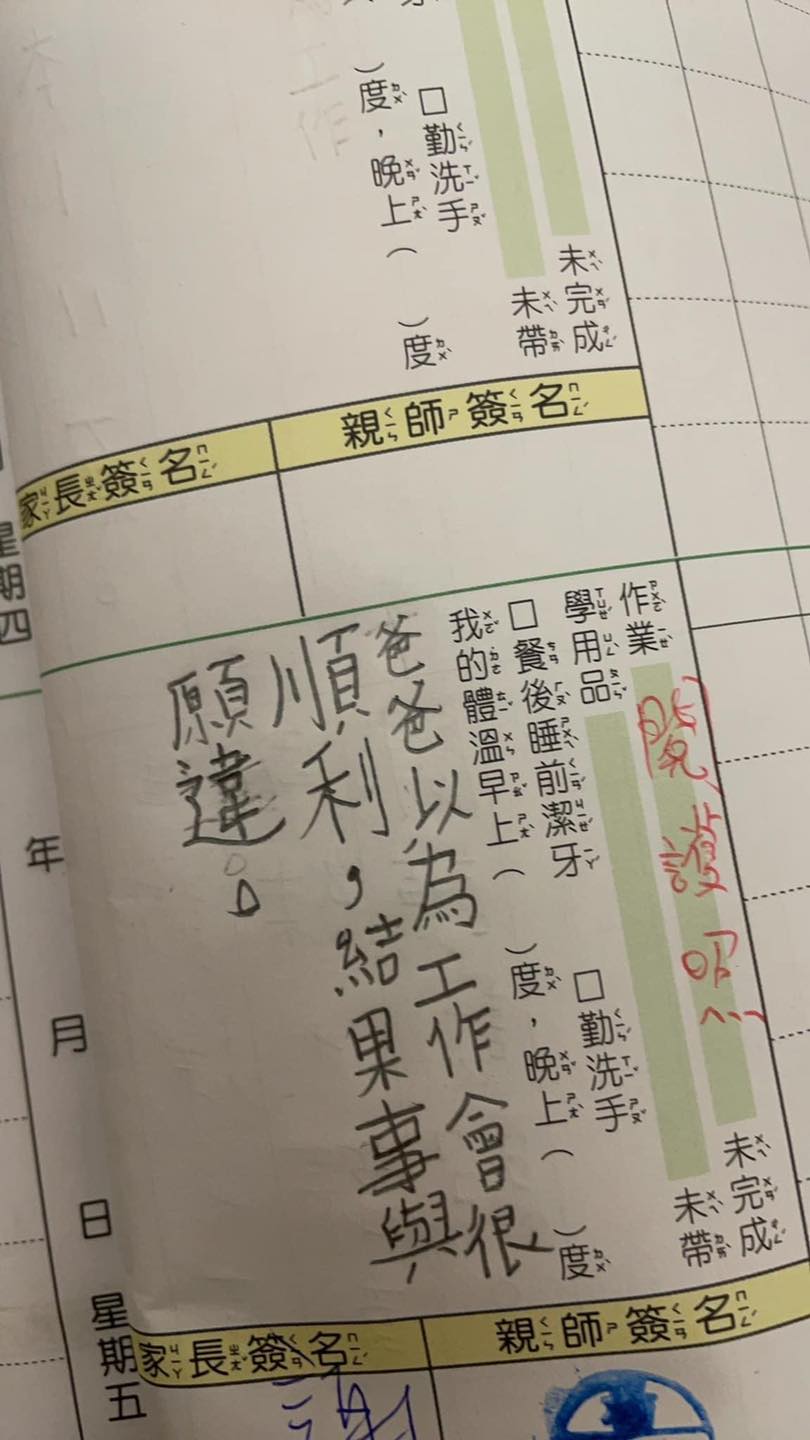 未完成
未帶
□勤洗手
)度，晚上( )度
親師簽名
家長簽名
星期四
作業 未完成
護照
學用品 未帶
□餐後睡前潔牙 □勤洗手
我的體溫早上( )度，晚上( )度
爸爸以為工作會很
順利，結果事與
願違。
親師簽名
家長簽名
年 月 日 星期五